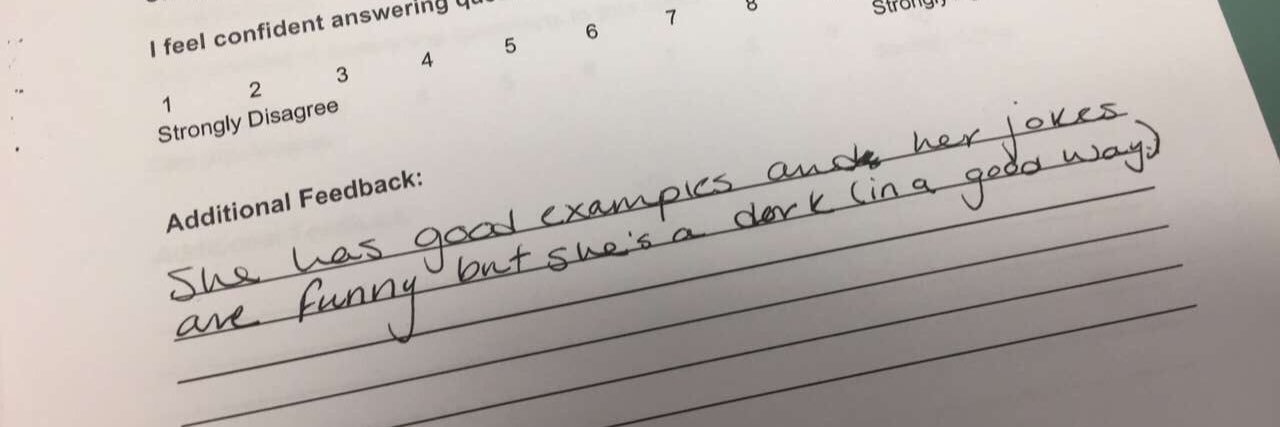 I feel confident answering
1 2 3 4 5 6 7 8
Strongly Disagree
Additional Feedback:
She has good examples and her jokes
are funny but she's a dork (in a good way.)